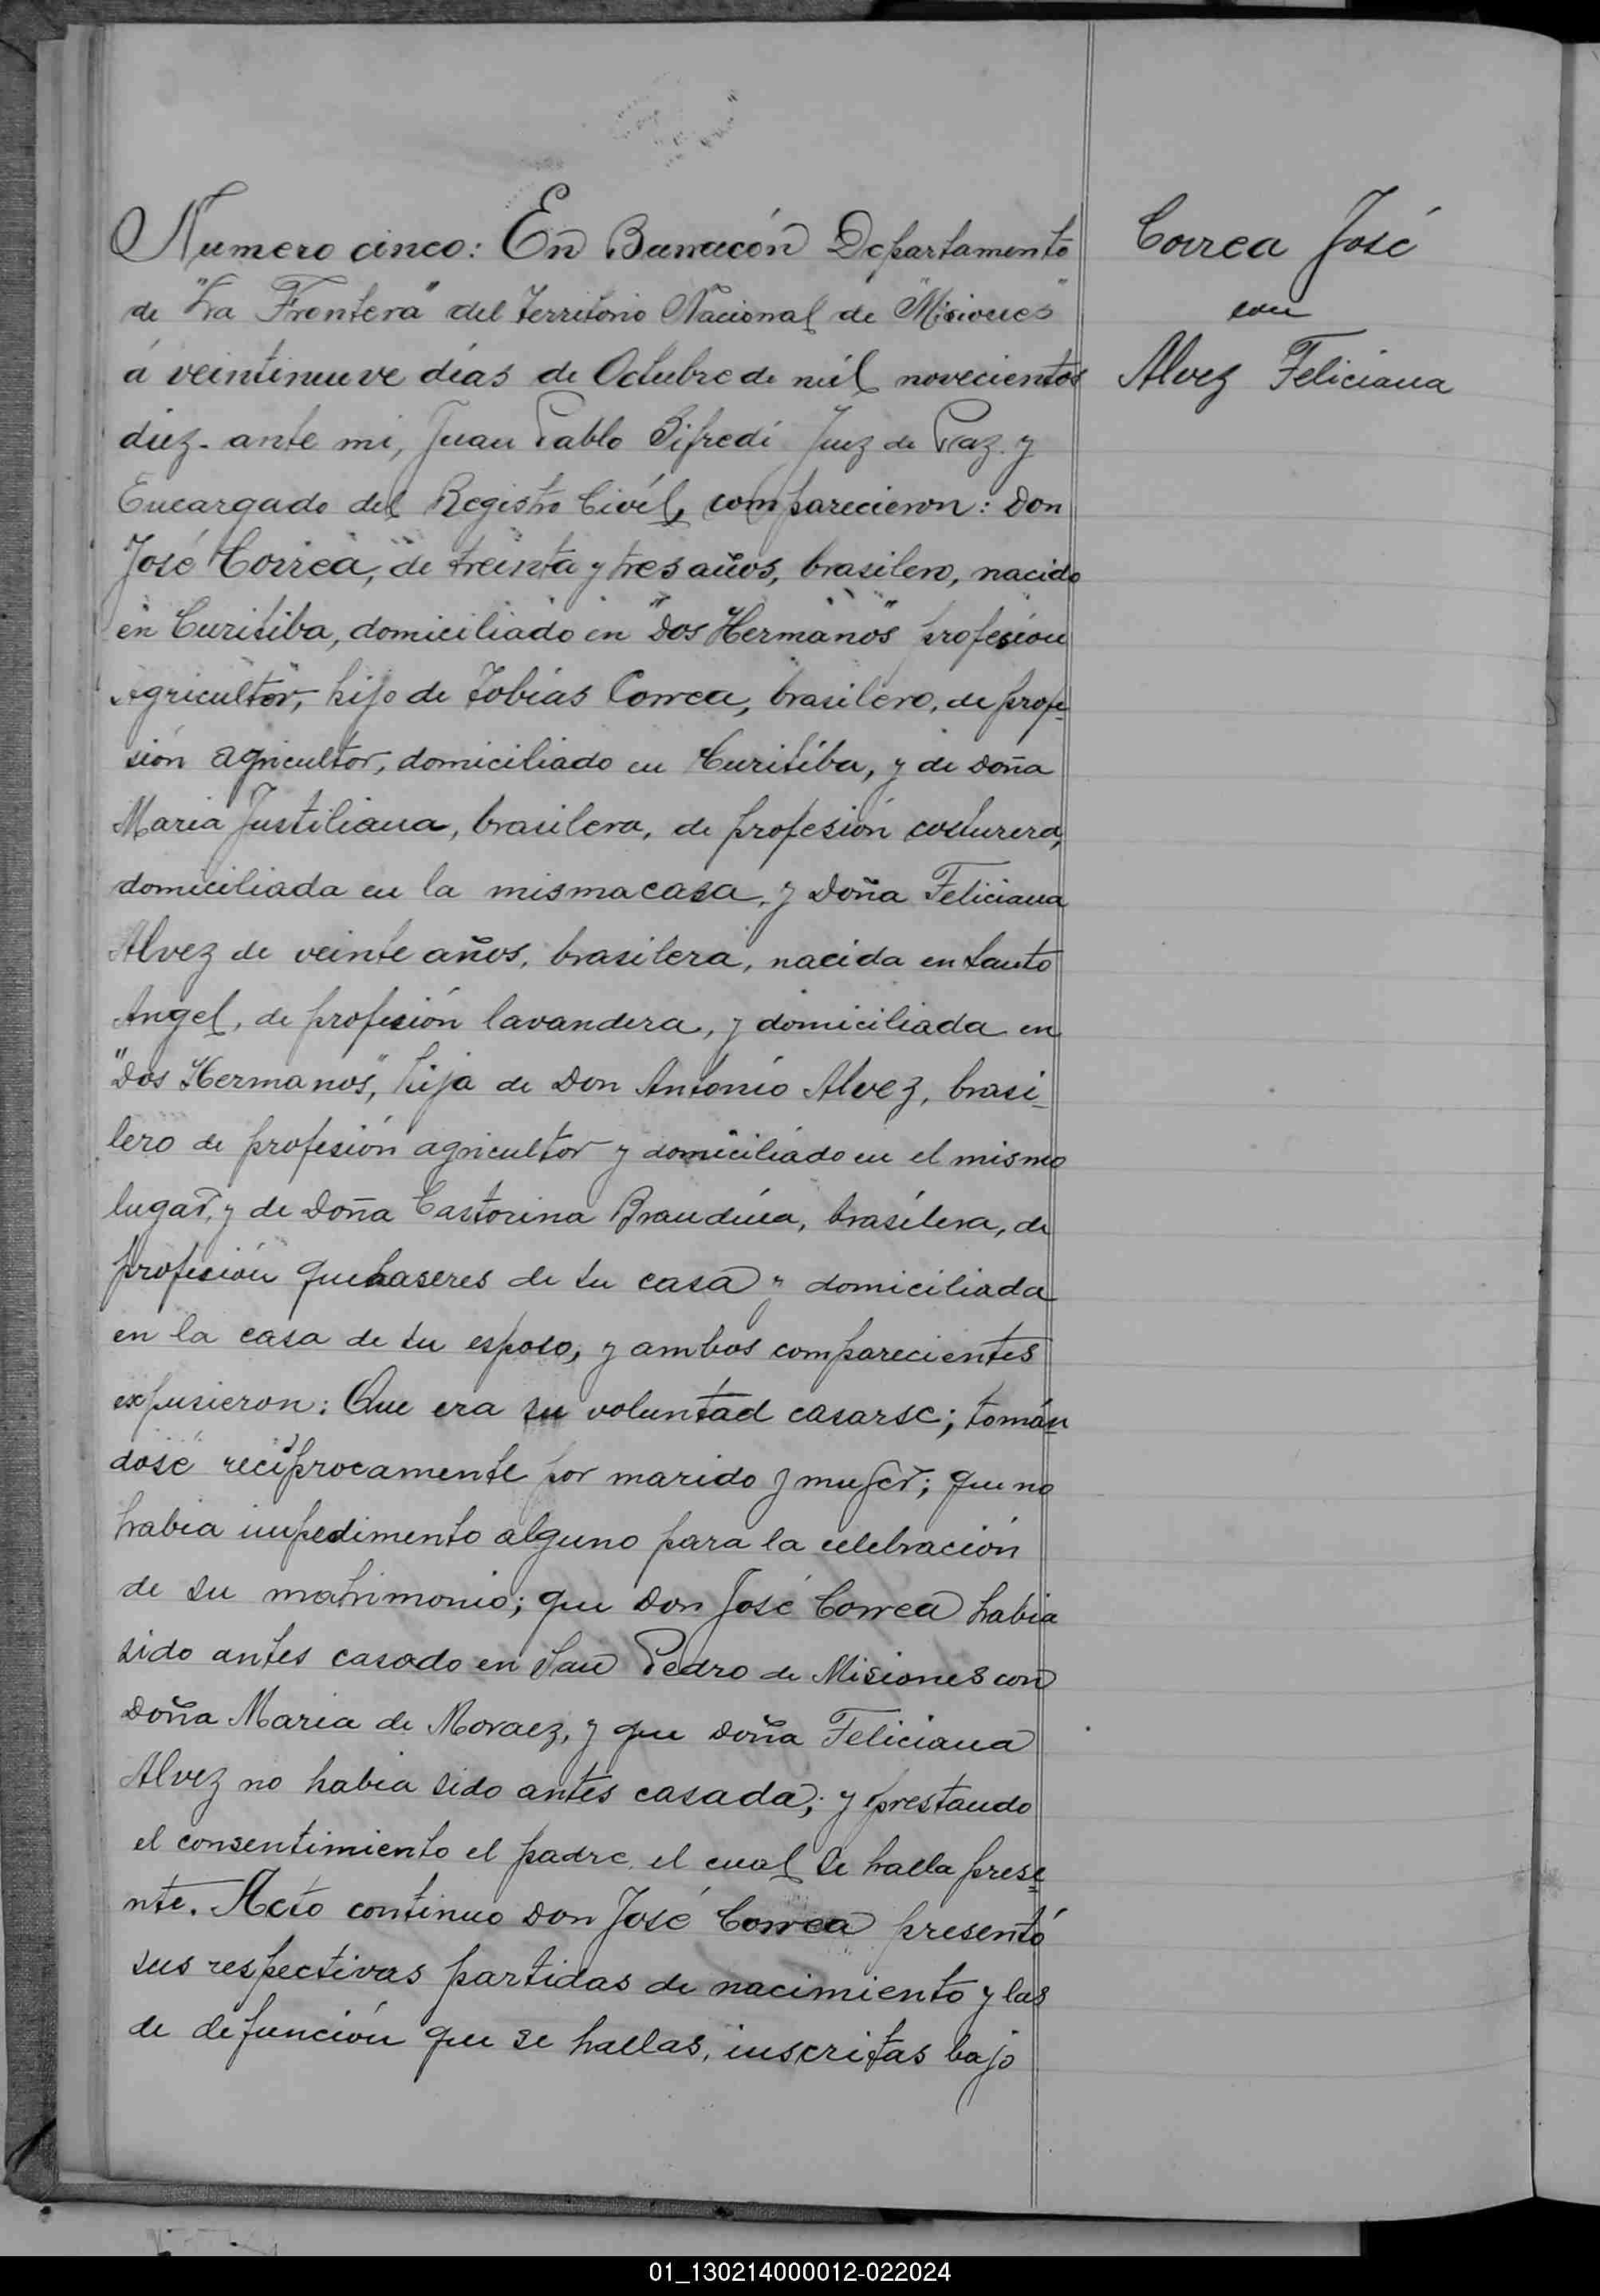 Numero cinco: En Barracón Departamento
de "La Frontera" del territorio Nacional de "Misiones"
á veintinueve días de Octubre de mil novecientos
diez. ante mi, Juan Pablo Sifredi Juez de Paz y
Encargado del Registro Civíl, comparecieron: Don
José Correa, de treinta y tres años, brasilero, nacido
en Curitiba, domiciliado en "Dos Hermanos" profesion
Agricultor, hijo de Tobias Correa, brasilero, de profe-
sión agricultor, domiciliado en Curitiba, y de doña
Maria Justiliana, brasilera, de profesión costurera,
domiciliada en la misma casa, y Doña Feliciana
Alvez de veinte años, brasilera, nacida en Santo
Angel, de profesión lavandera, y domiciliada en
"Dos Hermanos", hija de Don Antonio Alvez, brasi-
lero de profesión agricultor y domiciliado en el mismo
lugar, y de Doña Castorina Brandina, brasilera, de
profesión quehaseres de su casa y domiciliada
en la casa de su esposo, y ambos comparecientes
expusieron: Que era su voluntad casarse; tomán-
dose reciprocamente por marido y mujer; que no
habia impedimento alguno para la celebración
de su matrimonio; que Don José Correa habia
sido antes casado en San Pedro de Misiones con
Doña Maria de Moraez, y que Doña Feliciana
Alvez no habia sido antes casada; y prestando
el consentimiento el padre el cual se halla prese-
nte. Acto continuo Don José Correa presentó
sus respectivas partidas de nacimiento y las
de defunción que se hallas, inscritas bajo
Correa José
con
Alvez Feliciana
01_130214000012-022024